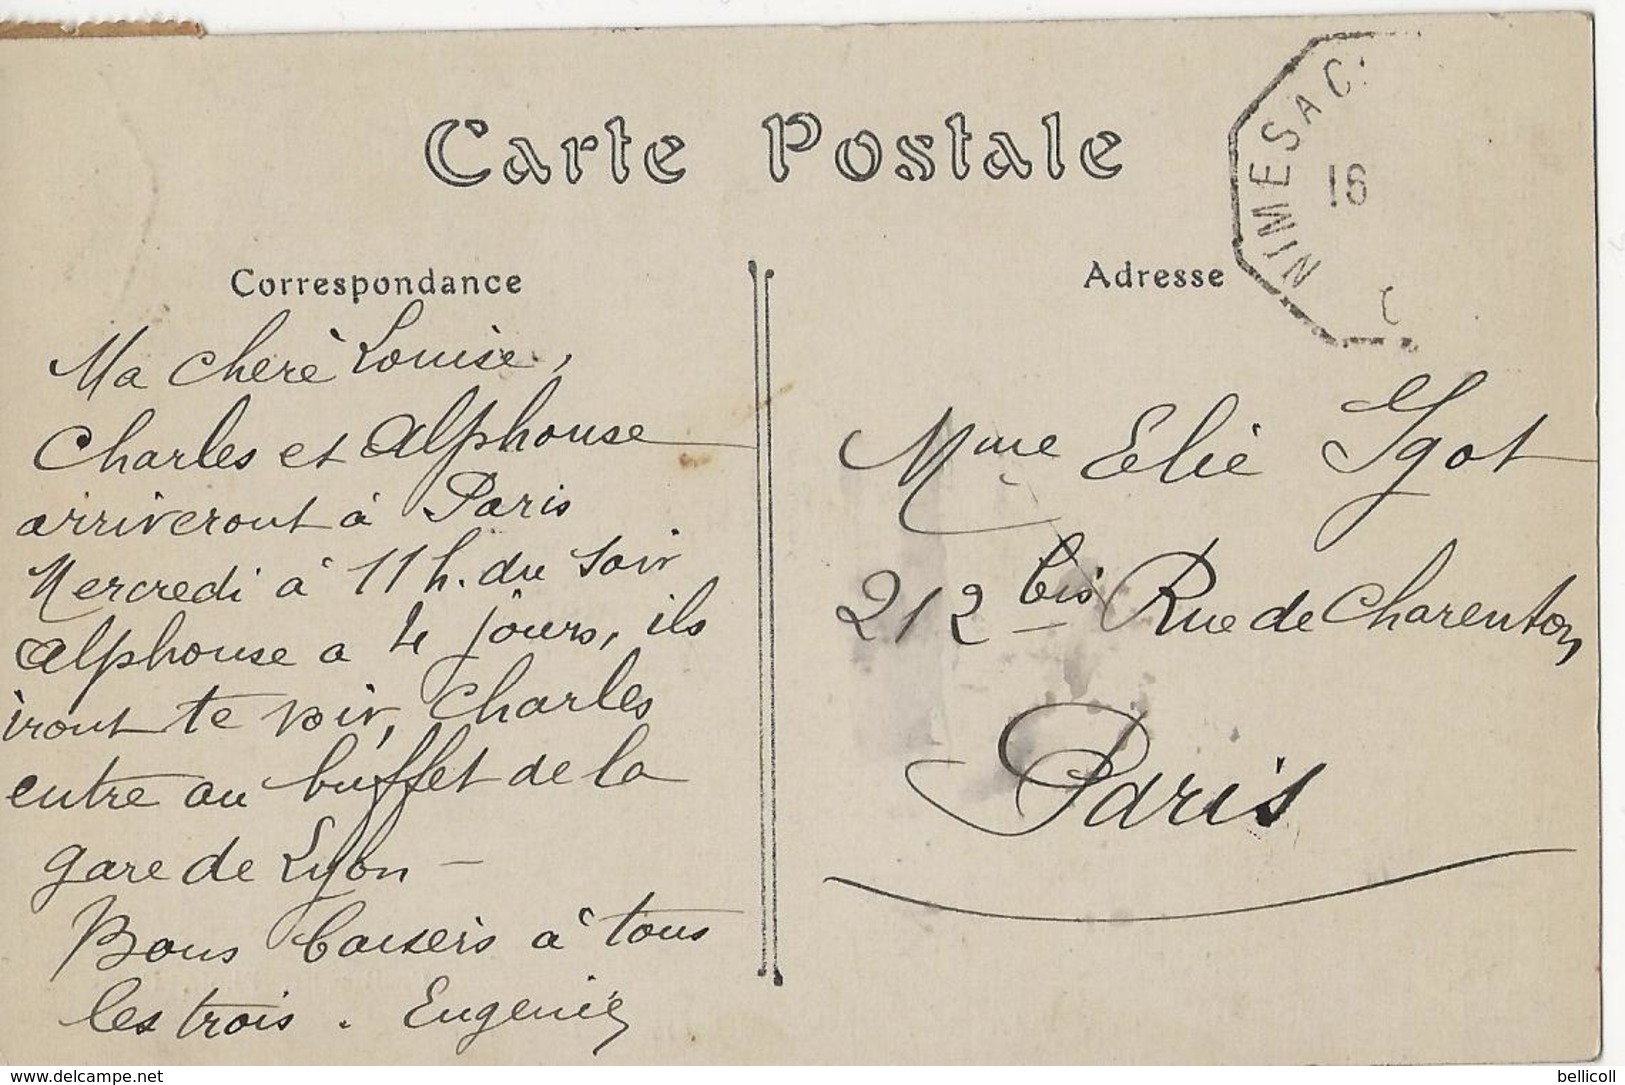 Carte Postale
NIMES A C
16
Correspondance
Ma chère Louise,
Charles et Alphonse
arriveront à Paris
Mercredi à 11 h. du soir
Alphonse a 4 jours, ils
iront te voir, Charles
entre au buffet de la
gare de Lyon –
Bons baisers à tous
les trois. Eugenie
Adresse
Mme Elie Igot
212 bis Rue de Charenton
Paris
bellicoll